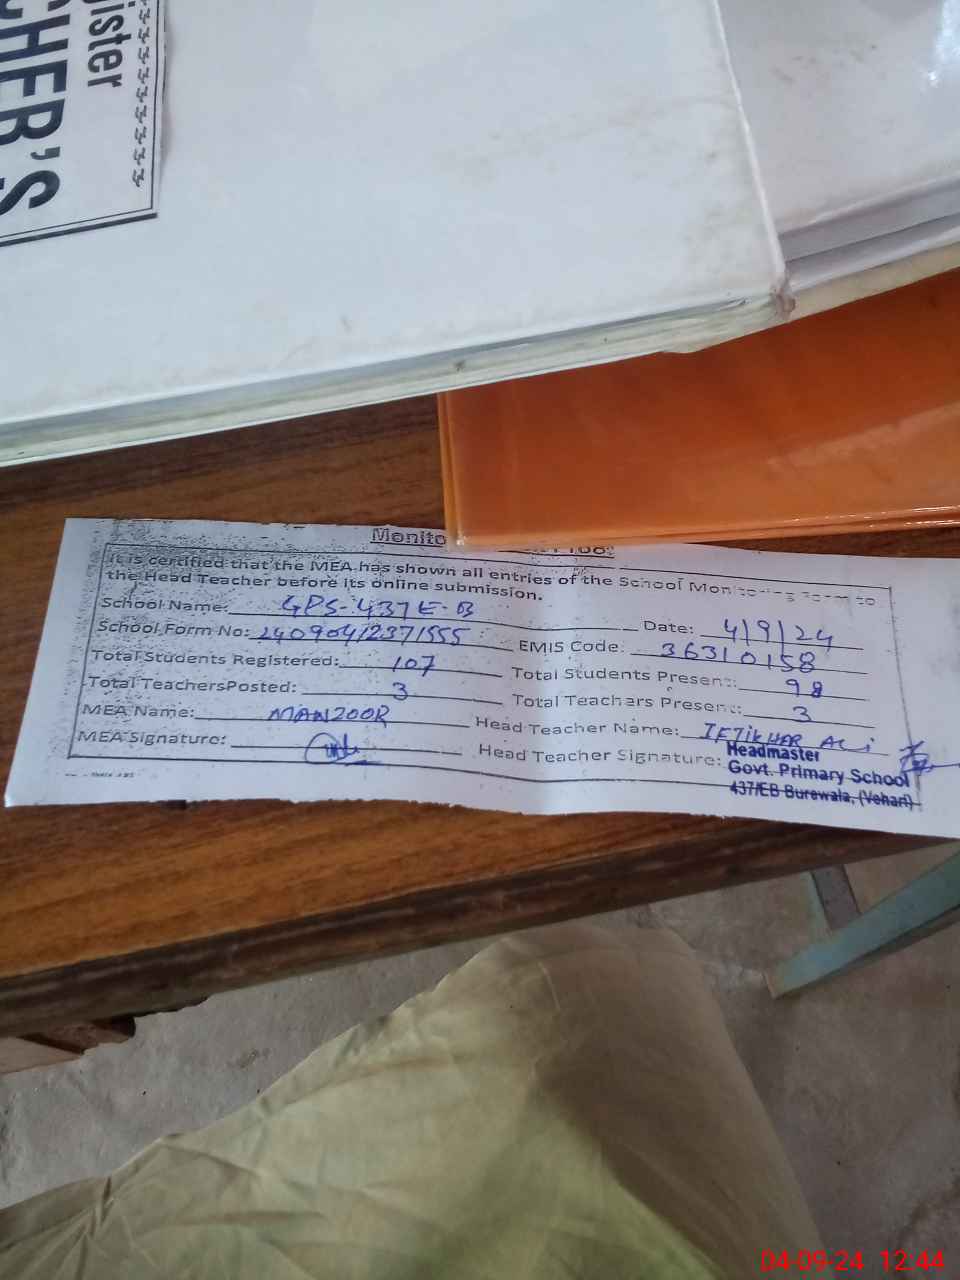 gister
CHER'S
Monito
It is certified that the MEA has shown all entries of the School Monitoring Form to
the Head Teacher before its online submission.
School Name: GPS-437 E-B
Date: 4/9/24
School Form No: 240904/2371555
EMIS Code: 36310158
Total Students Registered: 107
Total Students Present: 98
Total TeachersPosted: 3
Total Teachers Present: 3
MEA Name: MANZOOR
Head Teacher Name: IFTIKHAR ALI
MEA Signature:
Head Teacher Signature:
Headmaster
Govt. Primary School
437/EB Burewala, (Vehari)
04-09-24 12:44